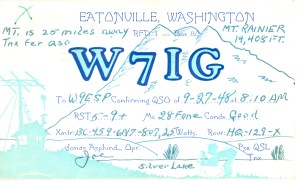 EATONVILLE, WASHINGTON
MT. IS 25 MILES away
Tnx Fer QSO
RFD 1
MT. RAINIER
14,408 FT.
W7IG
To W9ESP Confirming QSO of 9-27-48 at 8:10 AM
RST 5-9+ Mc 28 Fone Condx Good
Xmtr: BC-459-6V7-807, 25 Watts. Rcvr: HQ-129-X
Opr.
Joe
Silver Lake
Pse QSL
Tnx